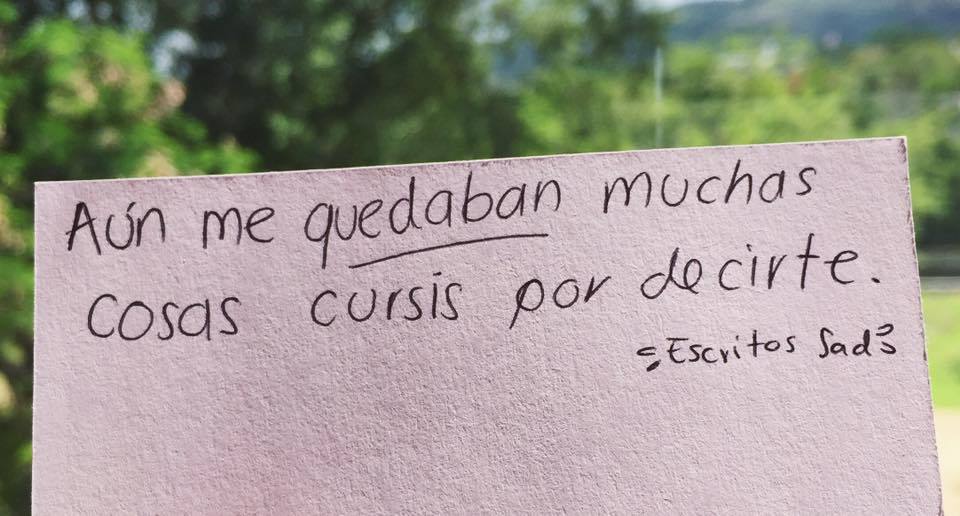 Aún me quedaban muchas
cosas cursis por decirte.
Escritos Sad